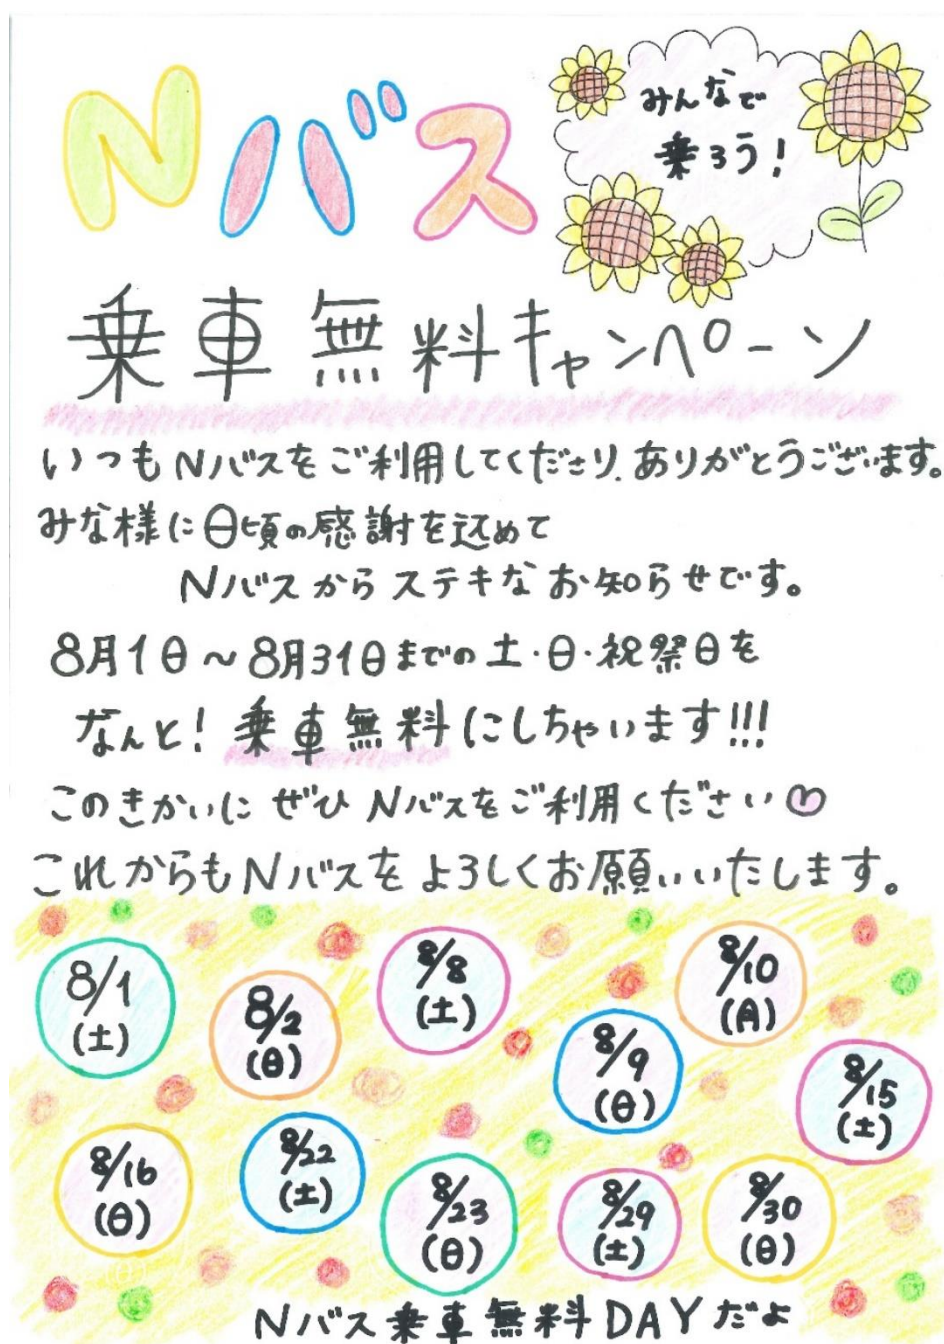 Nバス
みんなで
乗ろう!
乗車無料キャンペーン
いつもNバスをご利用してくださり、ありがとうございます。
みな様に日頃の感謝を込めて
Nバスからステキなお知らせです。
8月1日~8月31日までの土・日・祝祭日を
なんと!乗車無料にしちゃいます!!!
このきかいにぜひNバスをご利用ください♡
これからもNバスをよろしくお願いいたします。
8/1
(土)
8/2
(日)
8/8
(土)
8/9
(日)
8/10
(月)
8/15
(土)
8/16
(日)
8/22
(土)
8/23
(日)
8/29
(土)
8/30
(日)
Nバス乗車無料DAYだよ